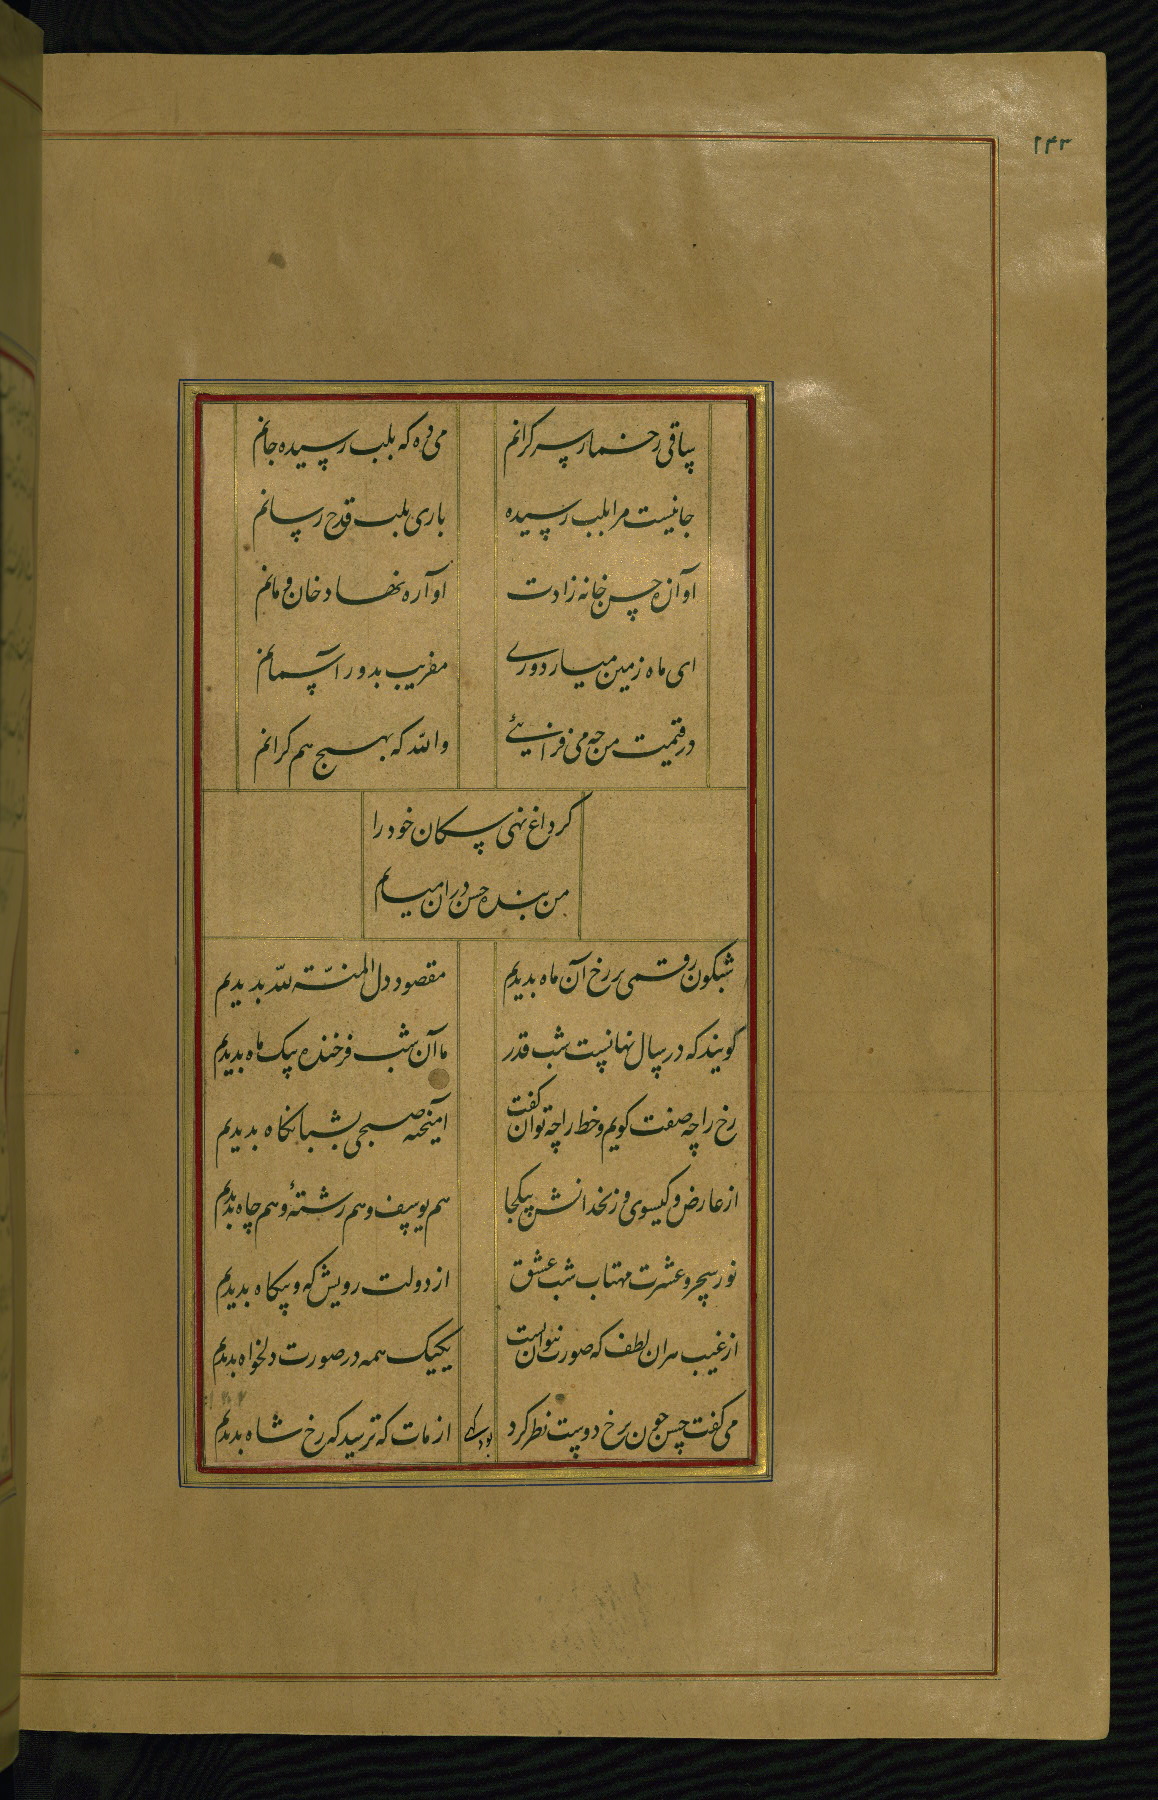 ۱۴۳
ساقی ز خمار سر کرانم می ده که بلب رسیده جانم
جانیست مرا بلب رسیده باری بلب قدح رسانم
او آن حسن خانه زادت آواره نهاد خان و مانم
ای ماه زمین میار دوری مفریب بدور آسمانم
در قیمت من چه می فزائی والله که بهیچ هم کرانم
کر داغ نهی سکان خود را
من بنده حسن در ان میانم
شبکون رقمی بر رخ آن ماه بدیدیم مقصود دل المنّة لله بدیدیم
کویند که در سال نهانست شب قدر ما آن شب فرخنده بیک ماه بدیدیم
رخ را چه صفت کویم و خط را چه توان کفت آمیخته صبحی بشبانکاه بدیدیم
از عارض و کیسوی و زنخدانش بیکجا هم یوسف و هم رشتهٔ و هم چاه بدیدیم
نور سحر و عشرت مهتاب شب عشق از دولت رویش که و بیکاه بدیدیم
از غیب هر ان لطف که صورت نتوان بست یکیک همه در صورت دلخواه بدیدیم
می کفت حسن چون برخ دوست نظر کرد از مات که ترسد که رخ شاه بدیدیم